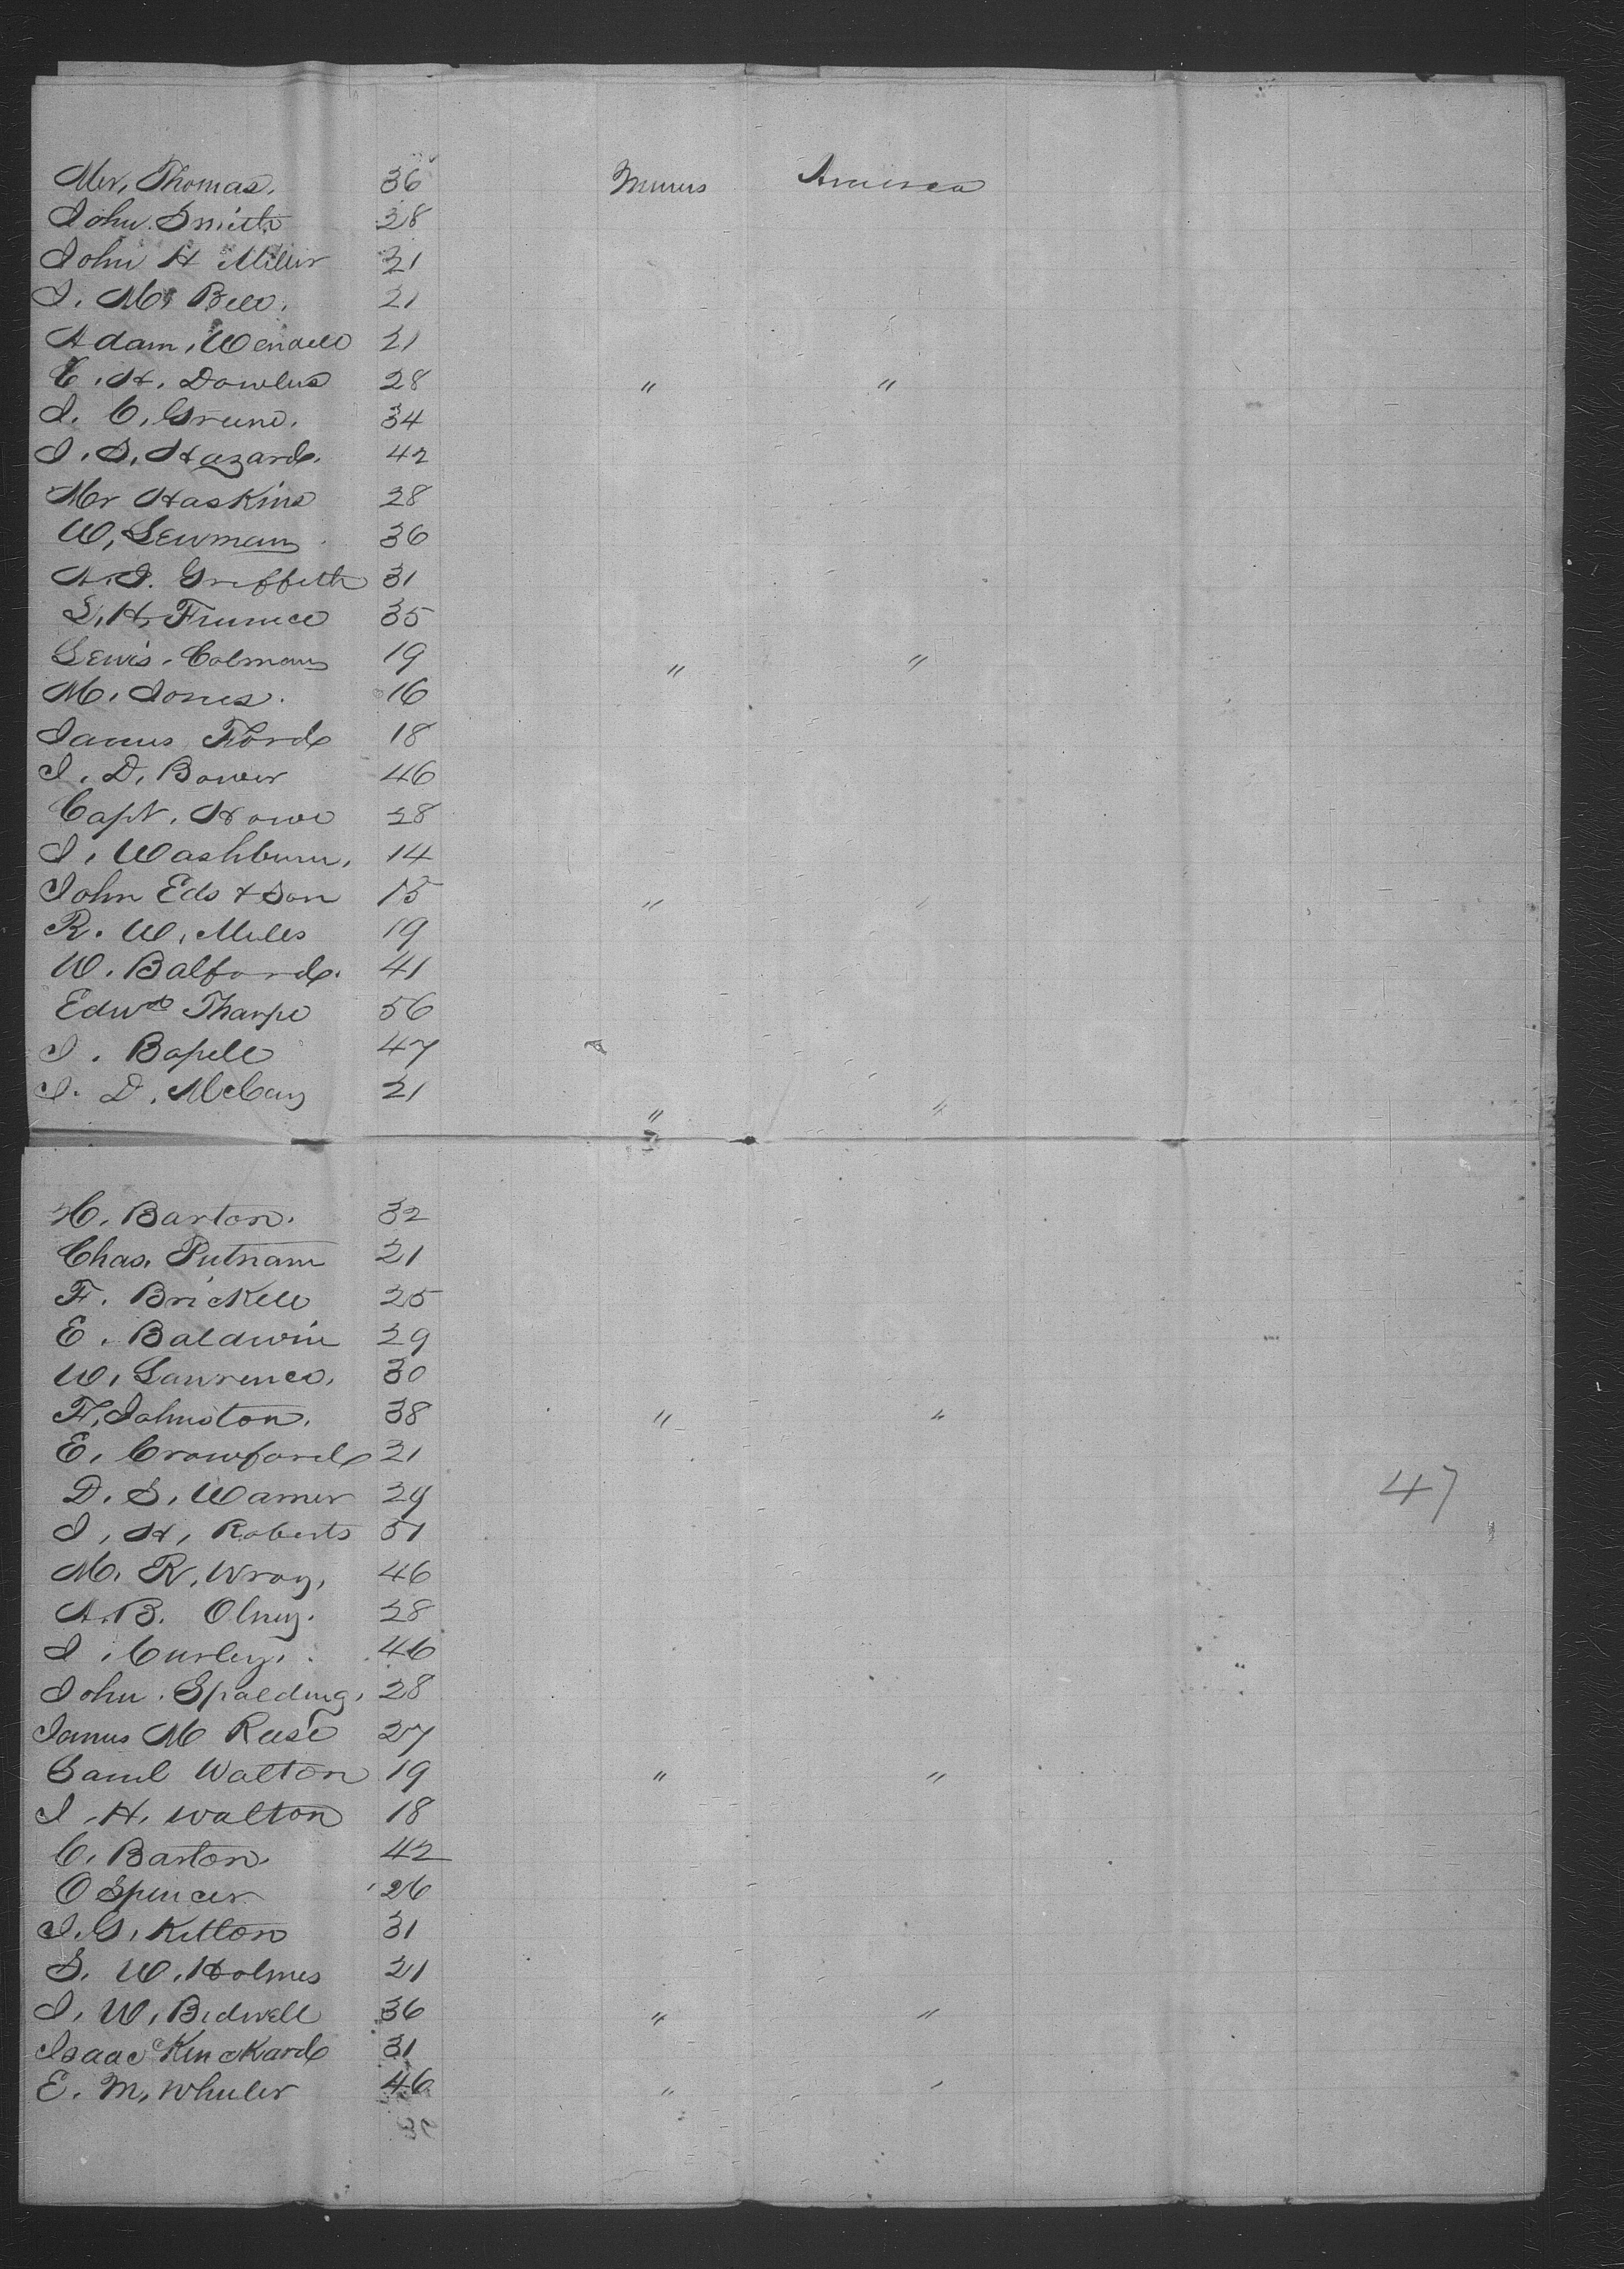 Mr, Thomas. 36 Miners America
John Smith 28
John H Miller 21
J. M. Bell. 21
Adam, Wendell 21
E. H. Dowlus 28 " "
J. C. Greene. 34
J. S. Hazard. 42
Mr Haskins 28
W, Lewman 36
A. J. Griffeth 31
L. H. 35
Lewis. Colman 19 " "
M. Jones. 16
James Ford 18
J. D. Bower 46
Capt. Howe 28
J. Washburn, 14
John Eds & Son 15 " "
R. W. Mills 19
W. Balford. 41
Edwd Tharpe 56
J. Bapell 47
J. D. McCay 21 " "
H. Barton. 32
Chas. Putnam 21
F. Brickell 25
E. Baldwin 29
W. Lawrence. 30
F. Johnston. 38 " "
E. Crawford 21
D. S. Warner 29
47
J, H, Roberts 51
M. R. Wray, 46
A. B. Olney. 28
J. Curley. 46
John. Spalding, 28
James M Reese 27
Saml Walton 19 " "
J. H. Walton 18
C. Barton. 42
O Spencer 26
J. G. Kitton 31
S. W. Holmes 21
J. W. Bidwell 36 " "
Isaac Kinckard 31
E. M. Wheeler 46 " "